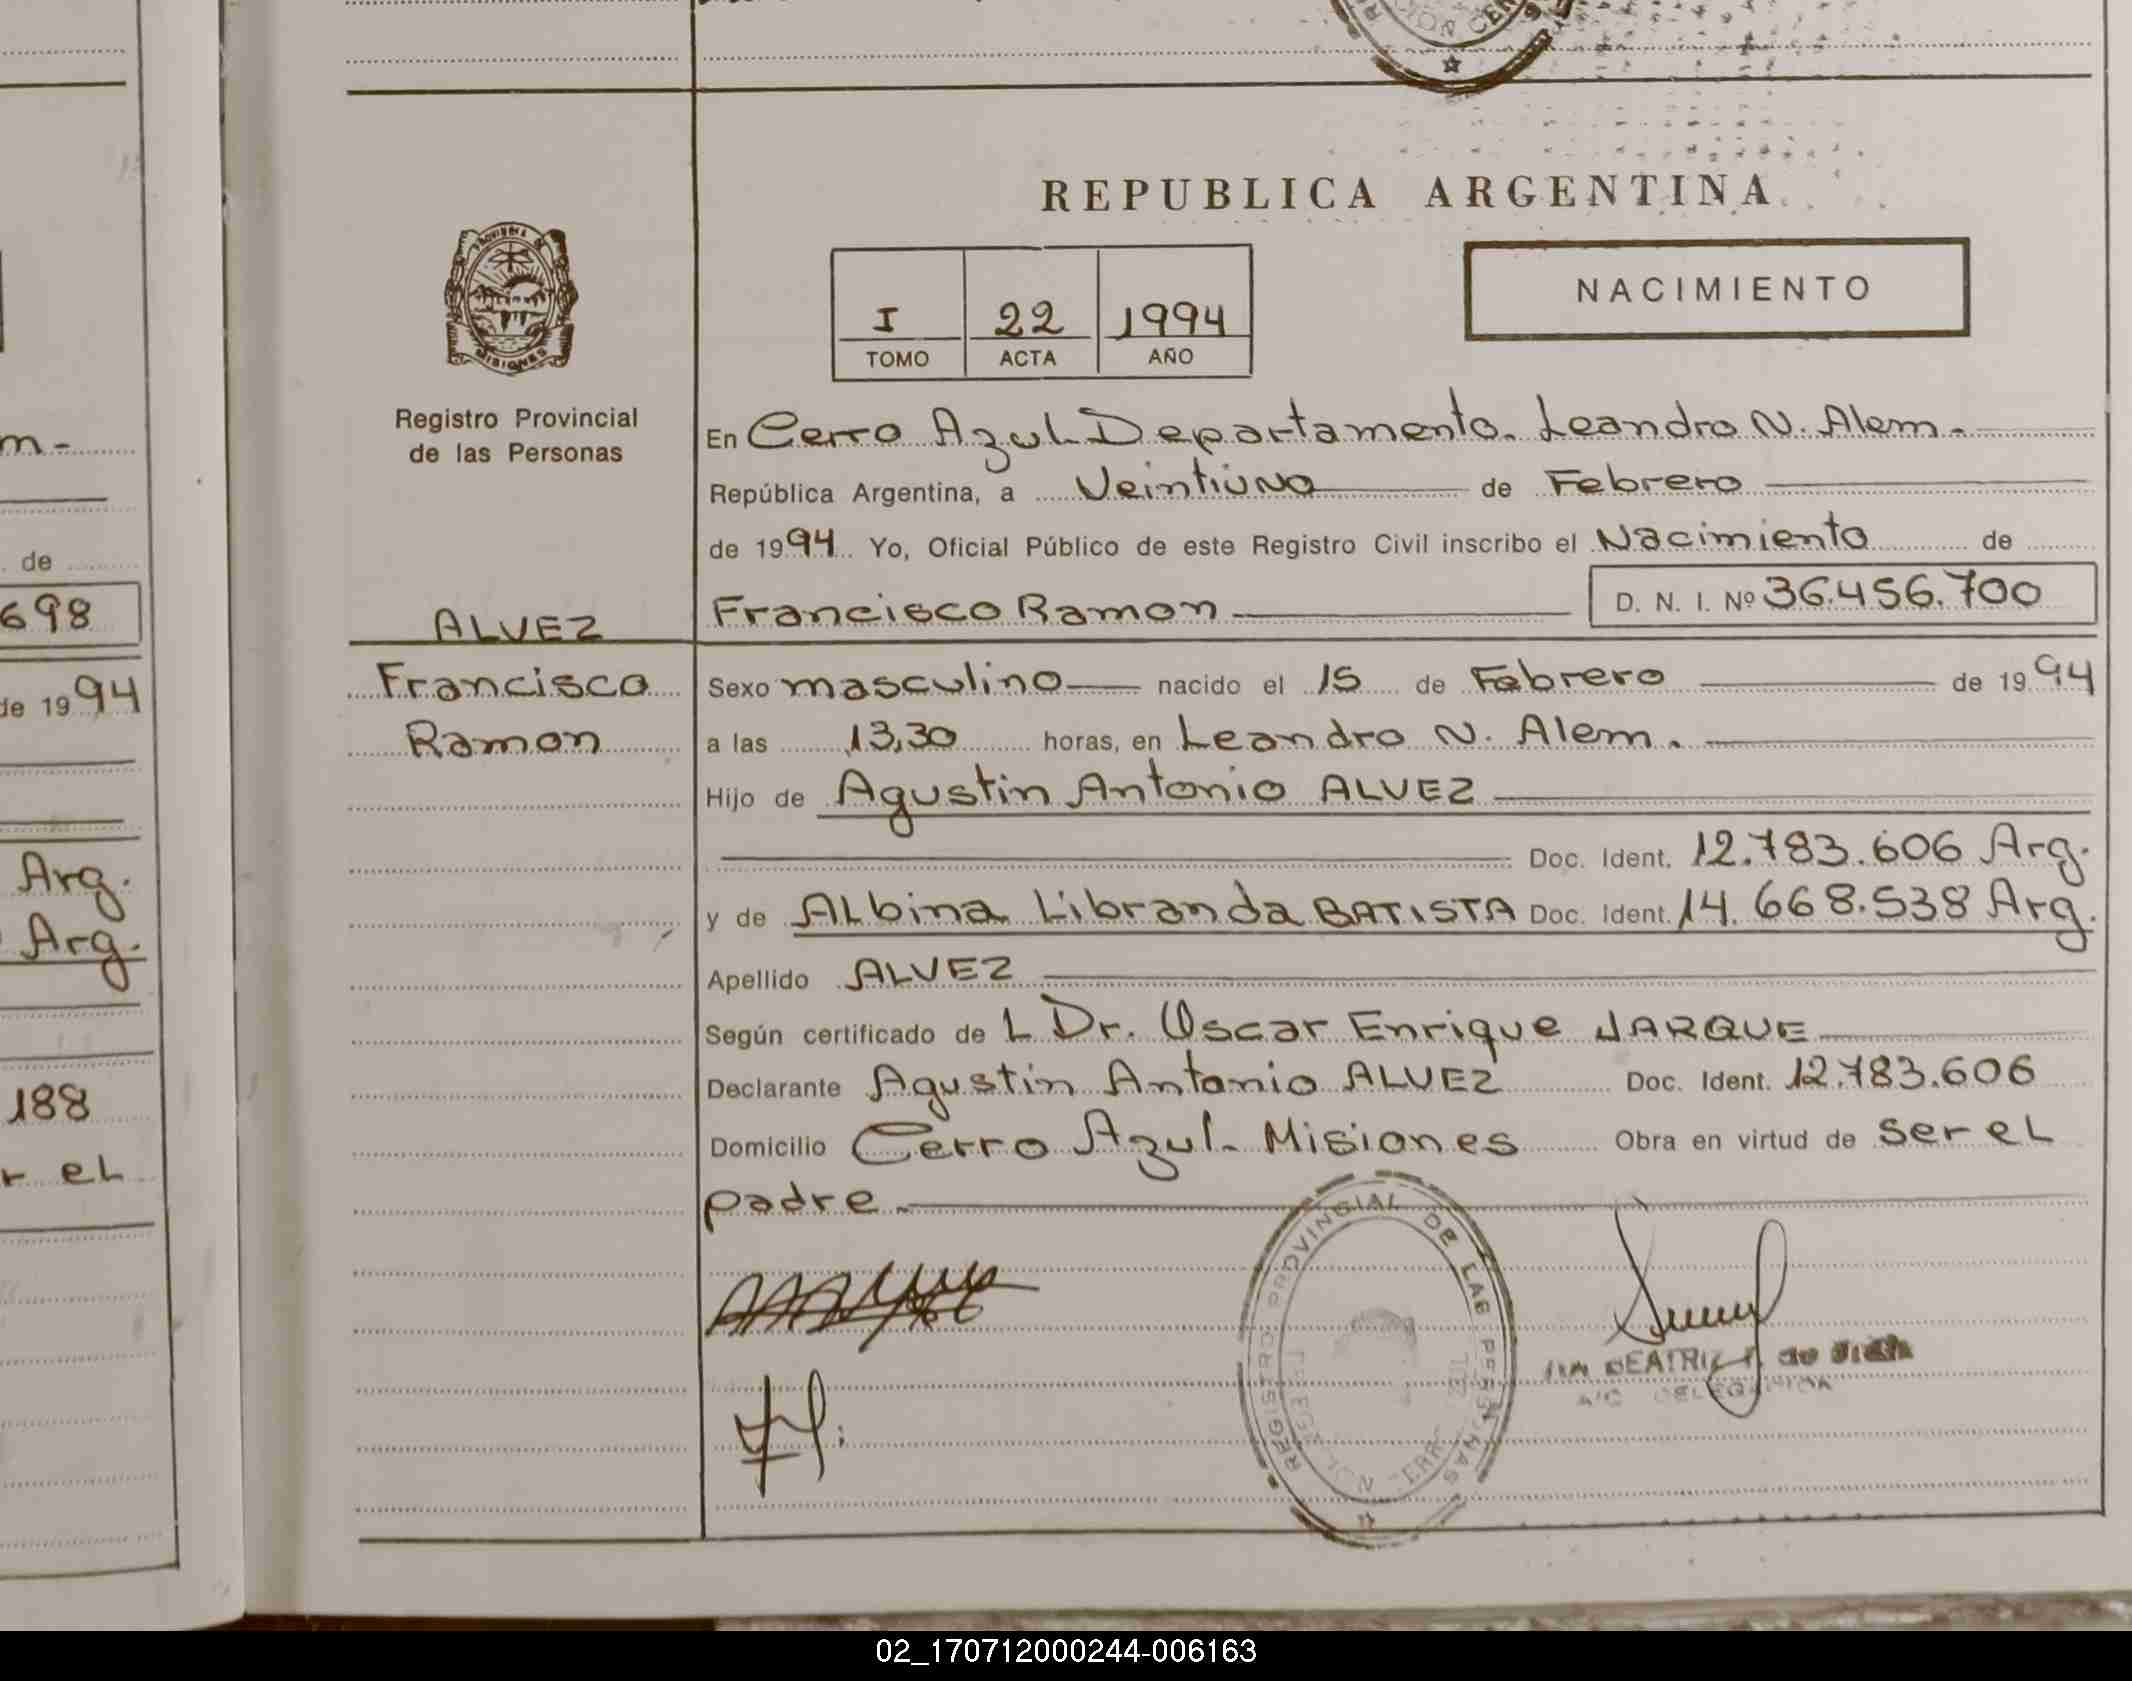 REPUBLICA ARGENTINA
NACIMIENTO
I 22 1994
TOMO ACTA AÑO
PROVINCIA DE
MISIONES
Registro Provincial
de las Personas
En Cerro Azul Departamento. Leandro N. Alem.
República Argentina, a Veintiuno de Febrero
de 1994 Yo, Oficial Público de este Registro Civil inscribo el Nacimiento de
Francisco Ramon D. N. I. Nº 36.456.700
ALVEZ
Francisco
Ramon
Sexo masculino nacido el 15 de Febrero de 1994
a las 13,30 horas, en Leandro N. Alem.
Hijo de Agustin Antonio ALVEZ
Doc. Ident. 12.783.606 Arg.
y de ALbina Libranda BATISTA Doc. Ident. 14.668.538 Arg.
Apellido ALVEZ
Según certificado de L Dr. Oscar Enrique JARQUE
Declarante Agustin Antonio ALVEZ Doc. Ident. 12.783.606
Domicilio Cerro Azul - Misiones Obra en virtud de ser eL
padre.
REGISTRO PROVINCIAL DE LAS PERSONAS
BEATRIZ
m-
de
698
de 1994
Arg.
Arg.
188
r eL
02_170712000244-006163